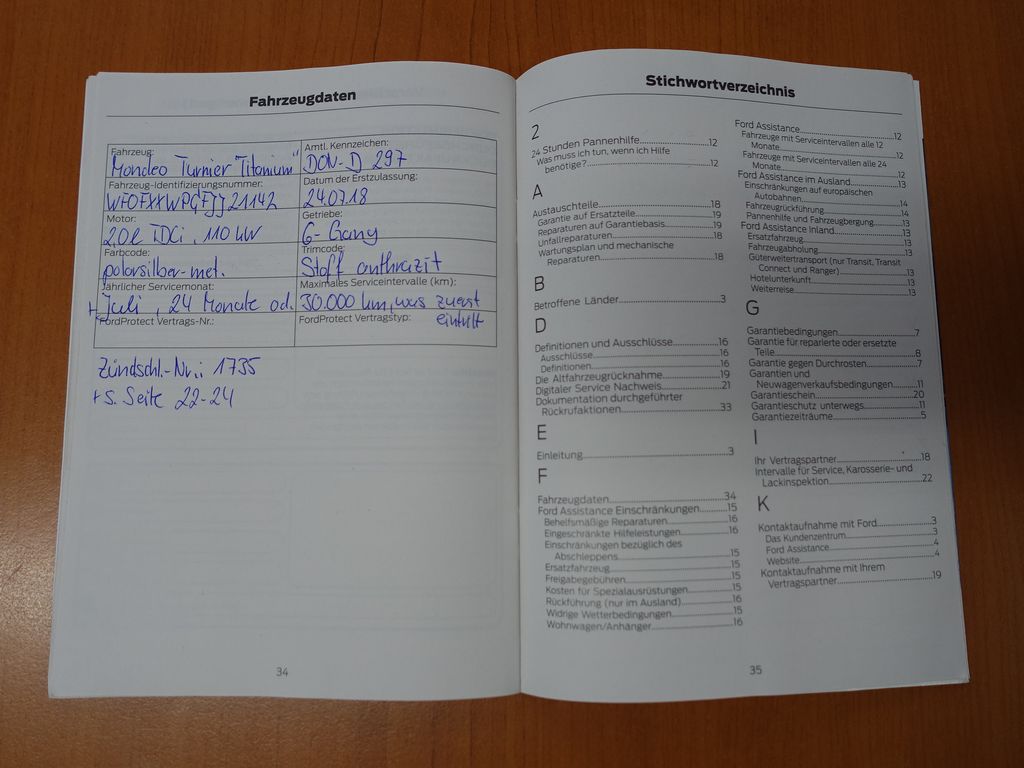 Fahrzeugdaten
Fahrzeug:
Mondeo Turnier "Titanium"
Amtl. Kennzeichen:
DON-D 297
Fahrzeug-Identifizierungsnummer:
WF0FXXWPCFJJ21142
Datum der Erstzulassung:
24.07.18
Motor:
2,0l TDCi, 110 kW
Getriebe:
6-Gang
Farbcode:
polarsilber-met.
Trimcode:
Stoff anthrazit
Jährlicher Servicemonat:
+ Juli, 24 Monate od.
Maximales Serviceintervalle (km):
30.000 km, was zuerst
eintritt
FordProtect Vertrags-Nr.:
FordProtect Vertragstyp:
Zündschl.-Nr.: 1735
+ s. Seite 22-24
34
Stichwortverzeichnis
2
24 Stunden Pannenhilfe....12
Was muss ich tun, wenn ich Hilfe
benötige?....12
A
Austauschteile....18
Garantie auf Ersatzteile....19
Reparaturen auf Garantiebasis....19
Unfallreparaturen....18
Wartungsplan und mechanische
Reparaturen....18
B
Betroffene Länder....3
D
Definitionen und Ausschlüsse....16
Ausschlüsse....16
Definitionen....16
Die Altfahrzeugrücknahme....19
Digitaler Service Nachweis....21
Dokumentation durchgeführter
Rückrufaktionen....33
E
Einleitung....3
F
Fahrzeugdaten....34
Ford Assistance Einschränkungen....15
Behelfsmäßige Reparaturen....16
Eingeschränkte Hilfeleistungen....16
Einschränkungen bezüglich des
Abschleppens....15
Ersatzfahrzeug....15
Freigabegebühren....15
Kosten für Spezialausrüstungen....15
Rückführung (nur im Ausland)....16
Widrige Wetterbedingungen....15
Wohnwagen/Anhänger....16
Ford Assistance....12
Fahrzeuge mit Serviceintervallen alle 12
Monate....12
Fahrzeuge mit Serviceintervallen alle 24
Monate....12
Ford Assistance im Ausland....13
Einschränkungen auf europäischen
Autobahnen....14
Fahrzeugrückführung....14
Pannenhilfe und Fahrzeugbergung....13
Ford Assistance Inland....13
Ersatzfahrzeug....13
Fahrzeugabholung....13
Güterweitertransport (nur Transit, Transit
Connect und Ranger)....13
Hotelunterkunft....13
Weiterreise....13
G
Garantiebedingungen....7
Garantie für reparierte oder ersetzte
Teile....8
Garantie gegen Durchrosten....7
Garantien und
Neuwagenverkaufsbedingungen....11
Garantieschein....20
Garantieschutz unterwegs....11
Garantiezeiträume....5
I
Ihr Vertragspartner....18
Intervalle für Service, Karosserie- und
Lackinspektion....22
K
Kontaktaufnahme mit Ford....3
Das Kundenzentrum....3
Ford Assistance....4
Website....4
Kontaktaufnahme mit Ihrem
Vertragspartner....19
35